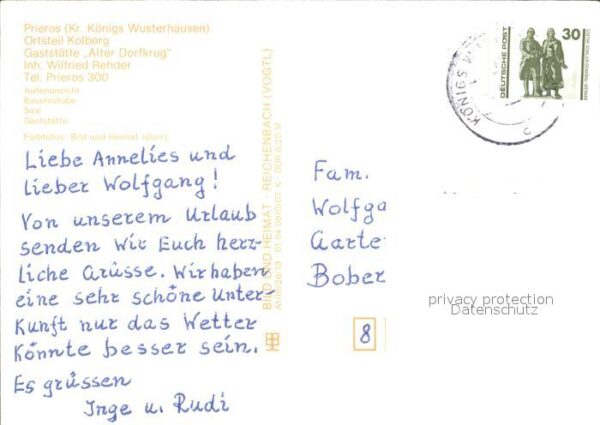 Prieros (Kr. Königs Wusterhausen)
Ortsteil Kolberg
Gaststätte „Alter Dorfkrug"
Inh. Wilfried Rehder
Tel. Prieros 300
Außenansicht
Bauernstube
Saal
Gaststätte
Farbfotos: Bild und Heimat (darr)
Liebe Annelies und
lieber Wolfgang!
Von unserem Urlaub
senden wir Euch herz-
liche Grüsse. Wir haben
eine sehr schöne Unter-
kunft nur das Wetter
könnte besser sein.
Es grüssen
Inge u. Rudi
BILD UND HEIMAT · REICHENBACH (VOGTL)
K DDR 0,20 M
DEUTSCHE POST
30
KÖNIGS
Fam.
Wolfga
Garte
Bober
8
privacy protection
Datenschutz